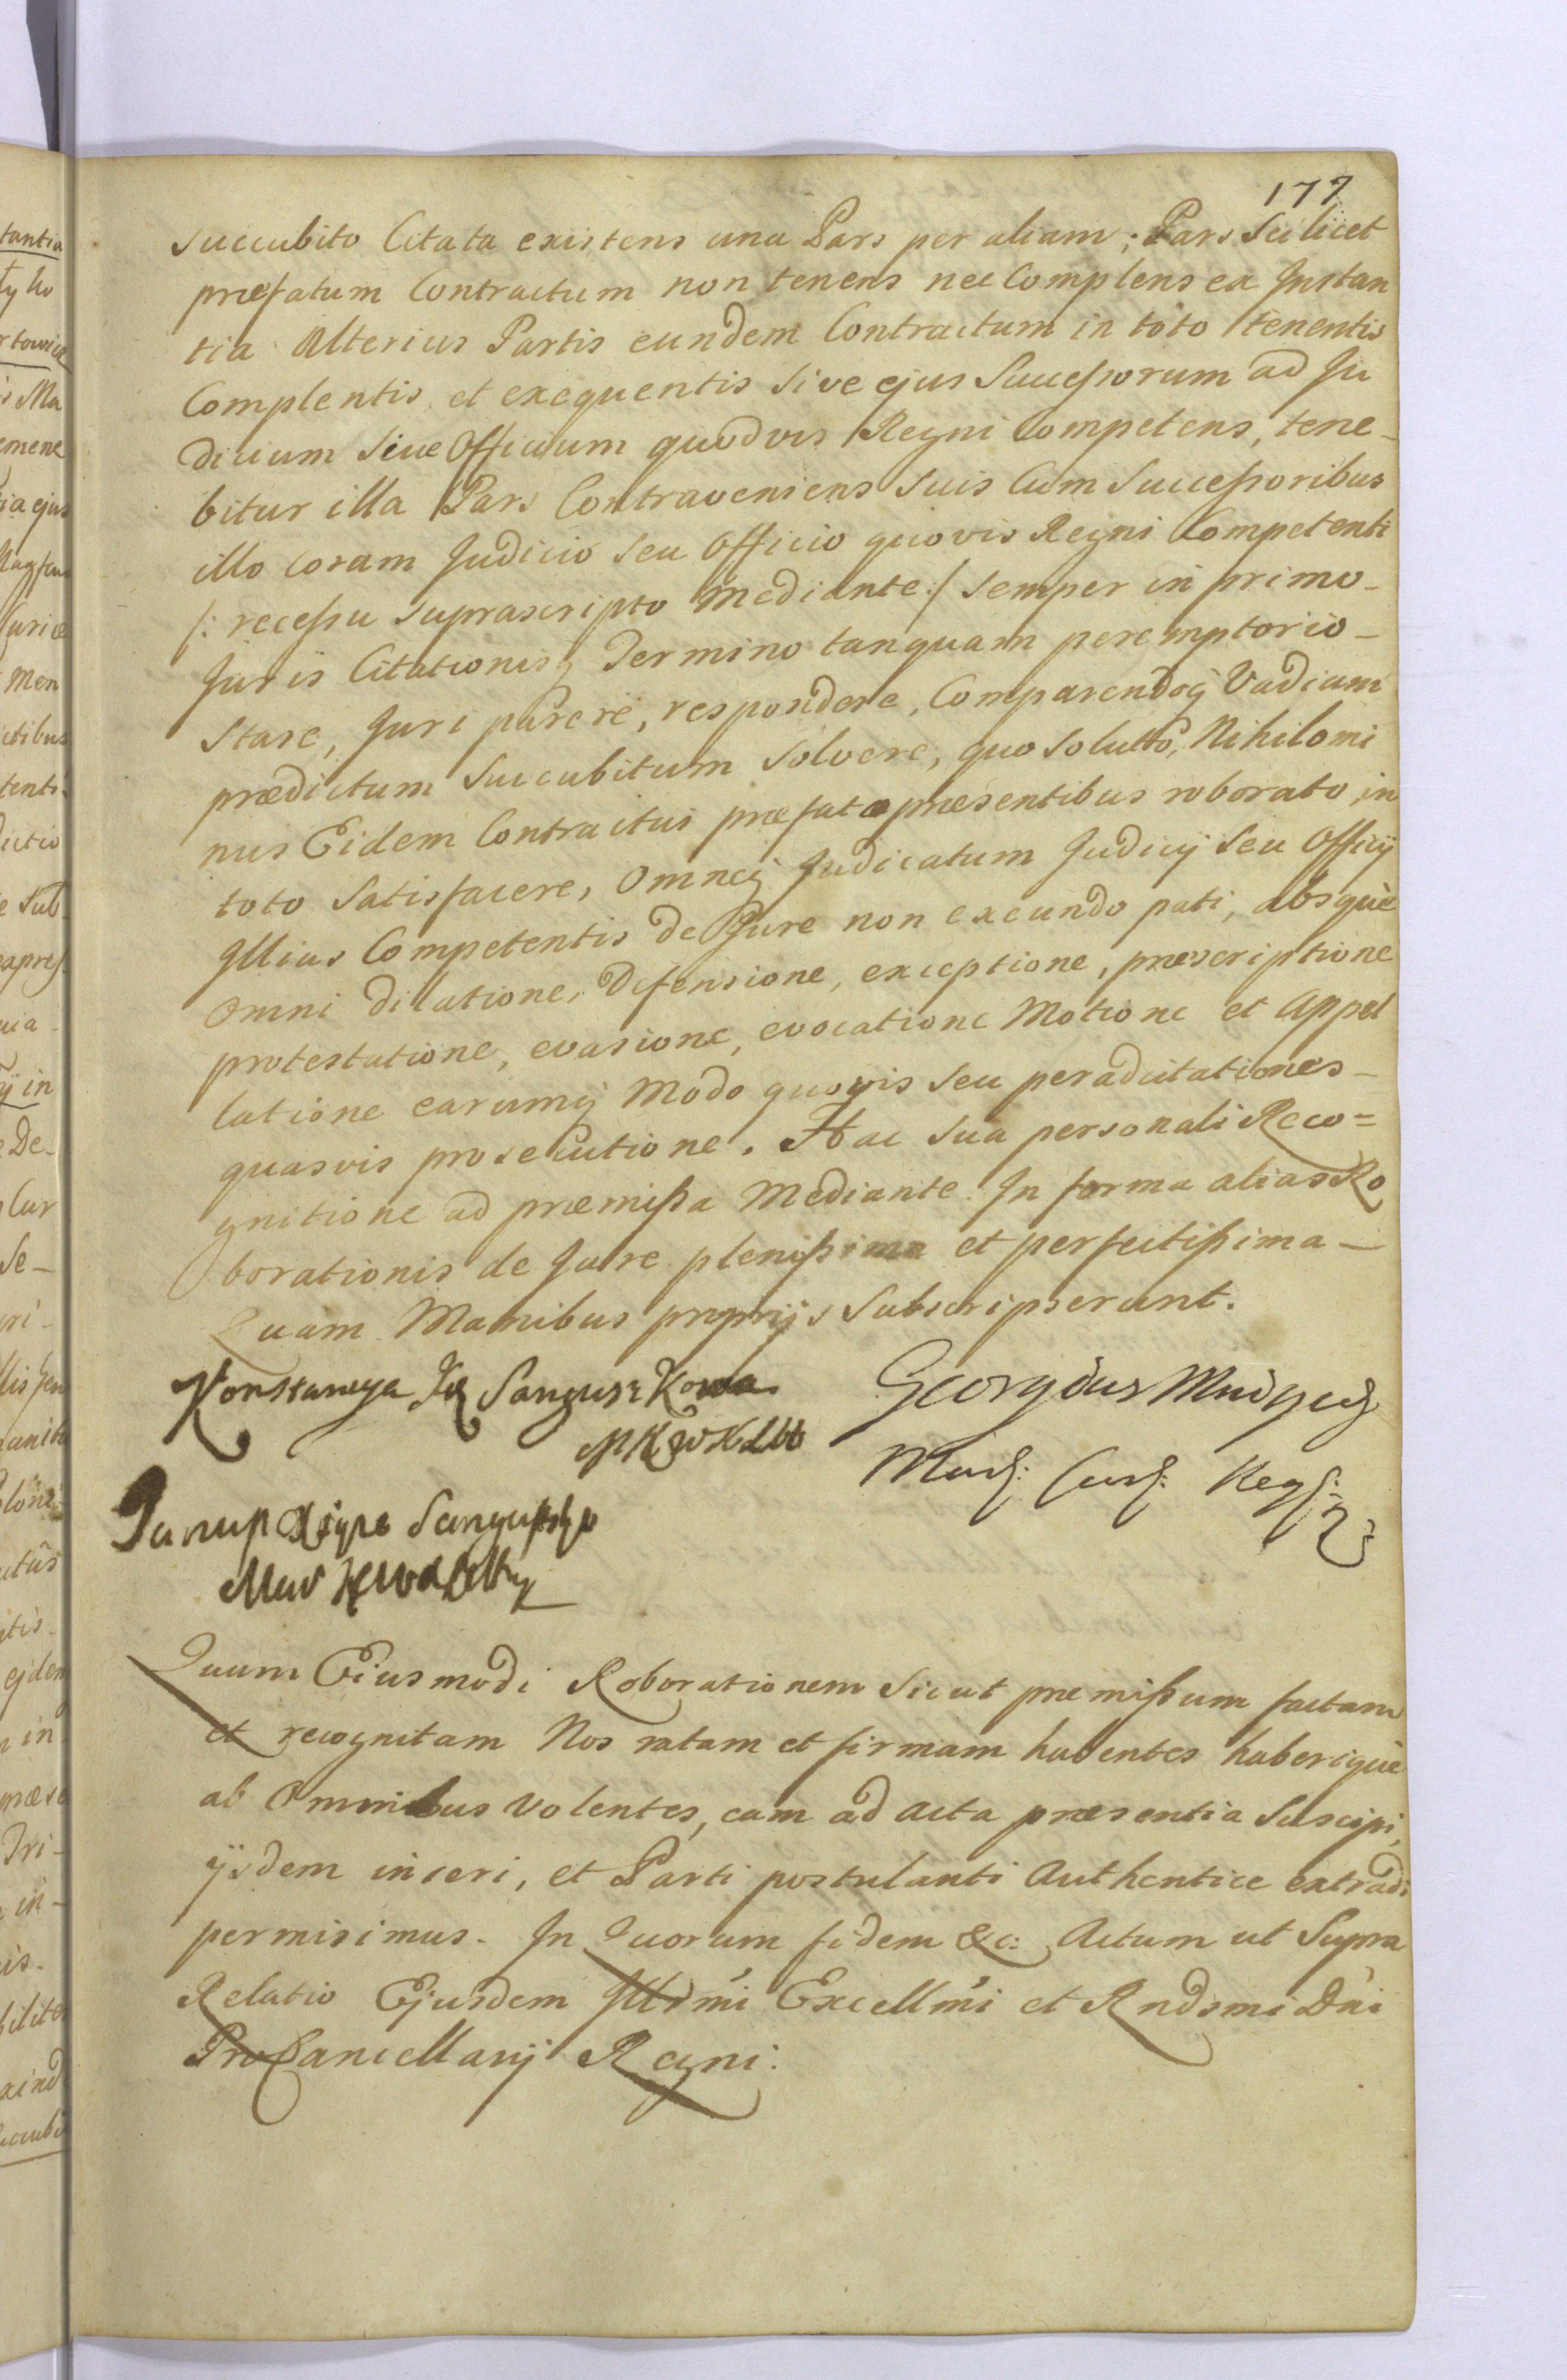 177
succubito Citata existens una Pars per aliam; Pars Scilicet
præfatum Contractum non tenens nec Complens ex Instan
tia Alterius Partis eundem Contractum in toto tenentis
Complentis et exequentis sive ejus Successorum ad Ju
dicium sive Officium quodvis Regni Competens, tene-
bitur illa Pars Contraveniens suis Cum Successoribus
illo coram Judicio seu Officio quovis Regni Competenti
/: recessu suprascripto Mediante :/ semper in primo-
Juris Citationisq Termino tanquam peremptorio-
Stare, Juri parere, respondere, Comparendoq Vadium
prædictum succubitum solvere, quo soluto, Nihilomi
nus Eidem Contractui præfato præsentibus roborato, in
toto Satisfacere, Omneq Judicatum Judicij seu Officij
Illius Competentis de Jure non exeundo pati, absque
Omni dilatione, Defensione, exceptione, præscriptione
protestatione, evasione, evocatione Motione et Appel
latione earumq Modo quovis seu peradcitationes-
quasvis prosecutione. Hac sua personali Reco=
gnitione ad præmissa Mediante. In forma alias Ro
borationis de Jure plenissima et perfectissima-
Quam Manibus proprijs Subscripserunt.
Konstancya Xię Sanguszkowa
MKWXLtt
Georgius Mniszech
Marl: Curl: Regl:
Janup Xiąże Sanguszko
Mar
Quum Eiusmodi Roborationem Sicut præmissum factam
et recognitam Nos ratam et firmam habentes haberique
ab Omnibus Volentes, eam ad Acta præsentia Suscipi,
ijsdem inseri, et Parti postulanti Authentice extradi
permisimus. In Quorum fidem &c: Actum ut Supra
Relatio Ejusdem Illrmi Excellmi et Rndsmi Dni
ProCancellarij Regni: